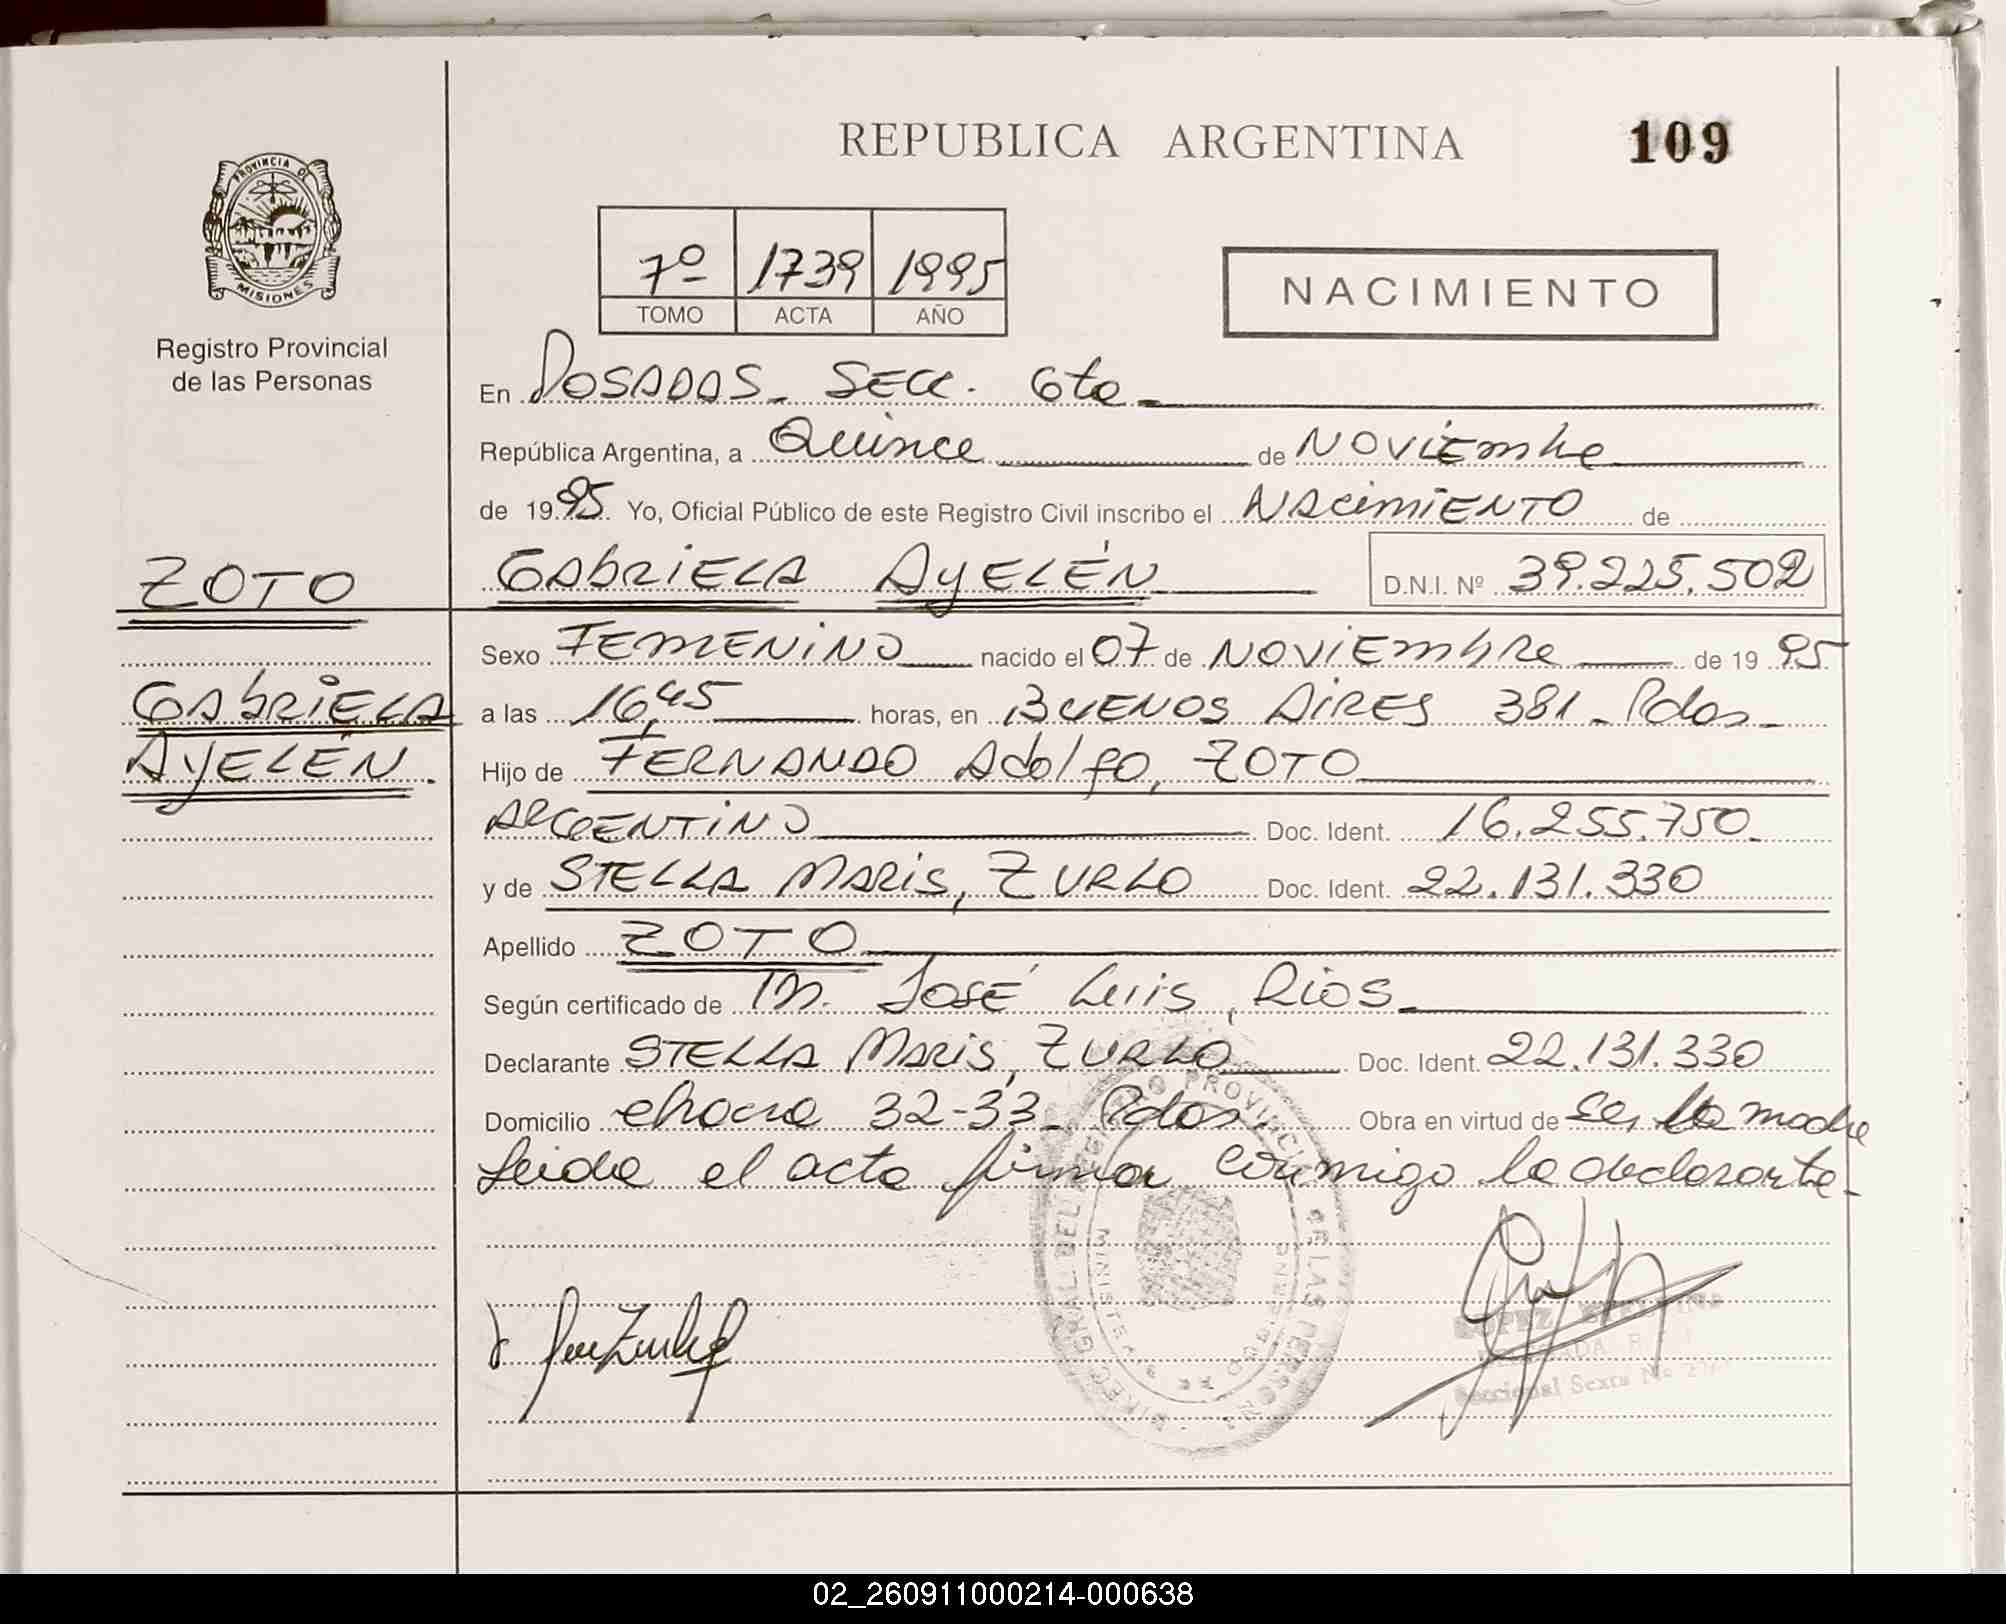 REPUBLICA ARGENTINA
109
PROVINCIA DE
MISIONES
Registro Provincial
de las Personas
7º 1739 1995
TOMO ACTA AÑO
NACIMIENTO
En Posadas - Secc. 6ta
República Argentina, a Quince de Noviembre
de 1995. Yo, Oficial Público de este Registro Civil inscribo el Nacimiento de
ZOTO
Gabriela Ayelén D.N.I. Nº 39.225.502
Sexo Femenino nacido el 07 de Noviembre de 1995
Gabriela
a las 16,45 horas, en Buenos Aires 381 - Pdas -
Ayelén.
Hijo de Fernando Adolfo, ZOTO
Argentino Doc. Ident. 16.255.750.
y de Stella Maris, Zurlo Doc. Ident. 22.131.330
Apellido ZOTO
Según certificado de M. José Luis, Rios
Declarante Stella Maris, Zurlo Doc. Ident. 22.131.330
Domicilio chacra 32-33 - Pdas. Obra en virtud de ser la madre
Leida el acta firma conmigo la declarante -
LOPEZ
Seccional Sexta
02_260911000214-000638